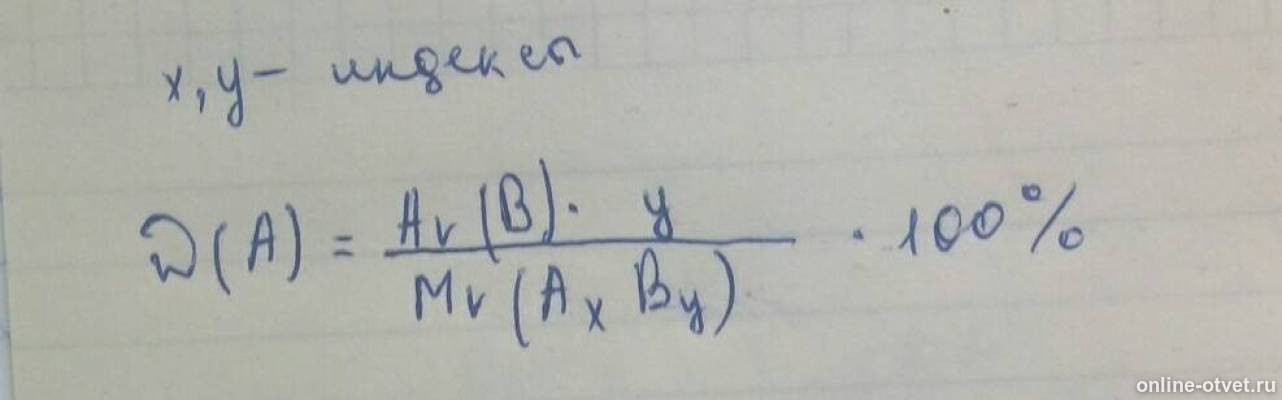 x, y - индексы
W(A) = Ar(B) · y / Mr(AxBy) · 100%
online-otvet.ru